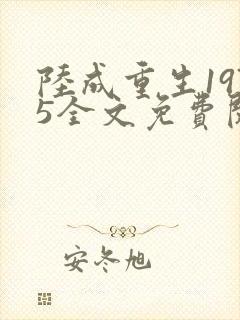 陸成重生19
5全文免費
安冬旭